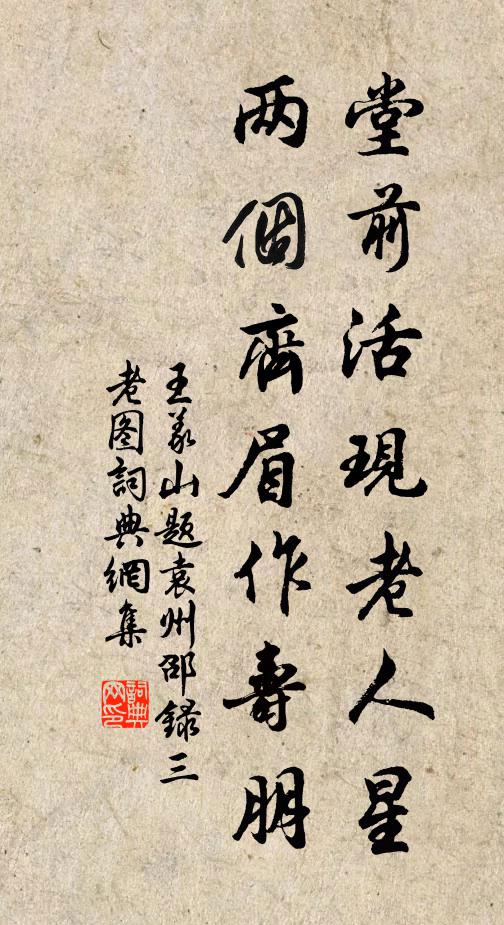 堂前活現老人星
两個齊眉作壽朋
王義山題袁州邵錄三
老图詞典網集
詞典网印